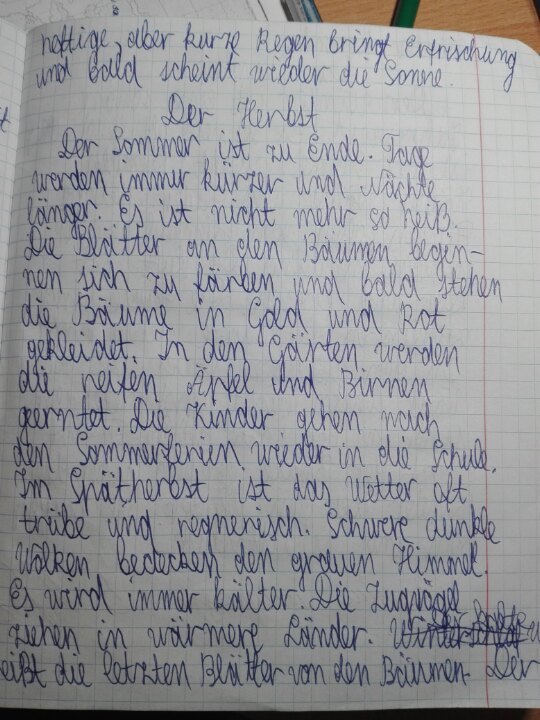 heftige, aber kurze Regen bringt Erfrischung
und bald scheint wieder die Sonne.
Der Herbst
Der Sommer ist zu Ende. Tage
werden immer kürzer und Nächte
länger. Es ist nicht mehr so heiß.
Die Blätter an den Bäumen begin-
nen sich zu färben und bald stehen
die Bäume in Gold und Rot
gekleidet. In den Gärten werden
die reifen Äpfel und Birnen
geerntet. Die Kinder gehen nach
den Sommerferien wieder in die Schule.
Im Spätherbst ist das Wetter oft
trübe und regnerisch. Schwere dunkle
Wolken bedecken den grauen Himmel.
Es wird immer kälter. Die Zugvögel
ziehen in wärmere Länder.
eißt die letzten Blätter von den Bäumen. Der